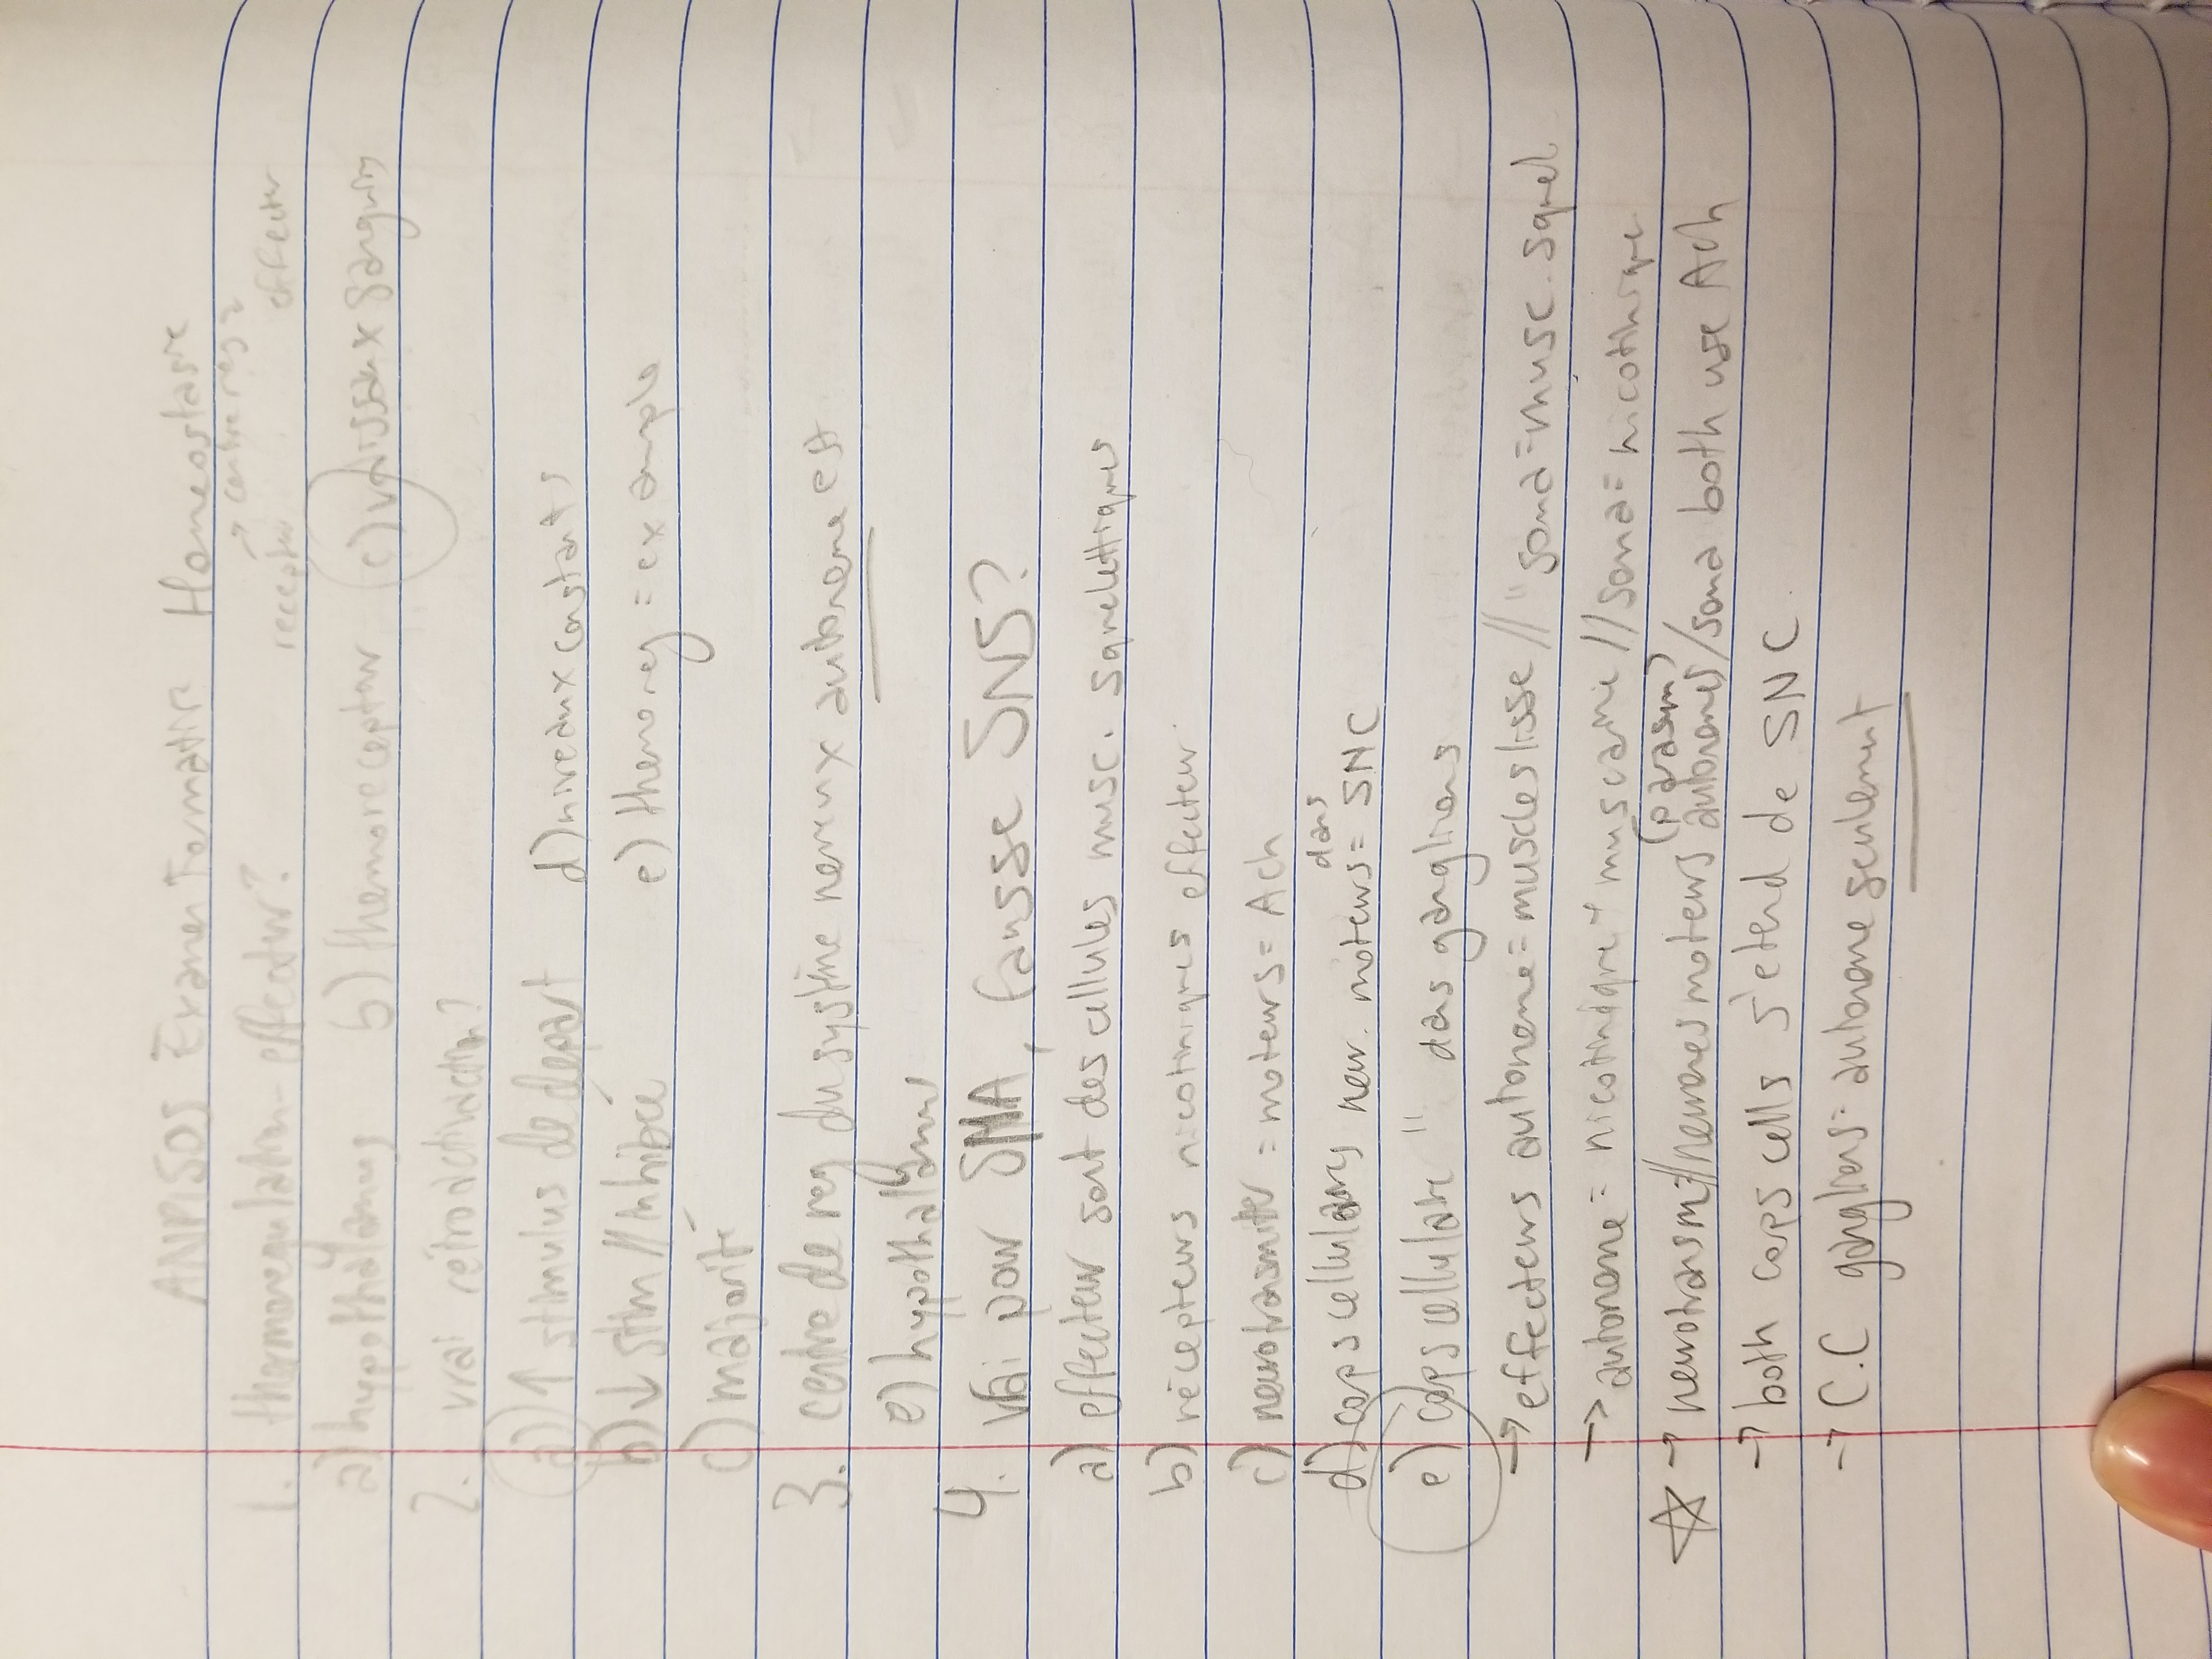 ANP1505 Examen Formatif Homeostasie
→ centre reg?
1. thermoregulation - effecteur? recepteur effecteur
a) hypothalamus b) thermorecepteur c) vaisseaux sanguin
2. vrai rétroactivation?
a) ↑ stimulus de depart d) niveaux constants
b) ↓ stim // inhibée e) thermoreg = example
c) majorité
3. centre de reg du système nerveux autonome est
e) hypothalamus
4. Vrai pour SNA, fausse SNS?
a) effecteur sont des cellules musc. squelettiques
b) récepteurs nicotiniques effecteur
c) neurotransmitter = moteurs = Ach
dans
d) corps cellulaires neur. moteurs = SNC
e) corps cellulaire " das ganglions
→ effecteurs autonome = muscles lisse // " soma = musc. squel
→ autonome = nicotinique + muscarine // soma = nicotinique
(parasym)
☆ → neurotransm = // neurones moteurs autonomes/soma both use Ach
→ both corps cells s'etend de SNC
→ C.C ganglions = autonome seulement